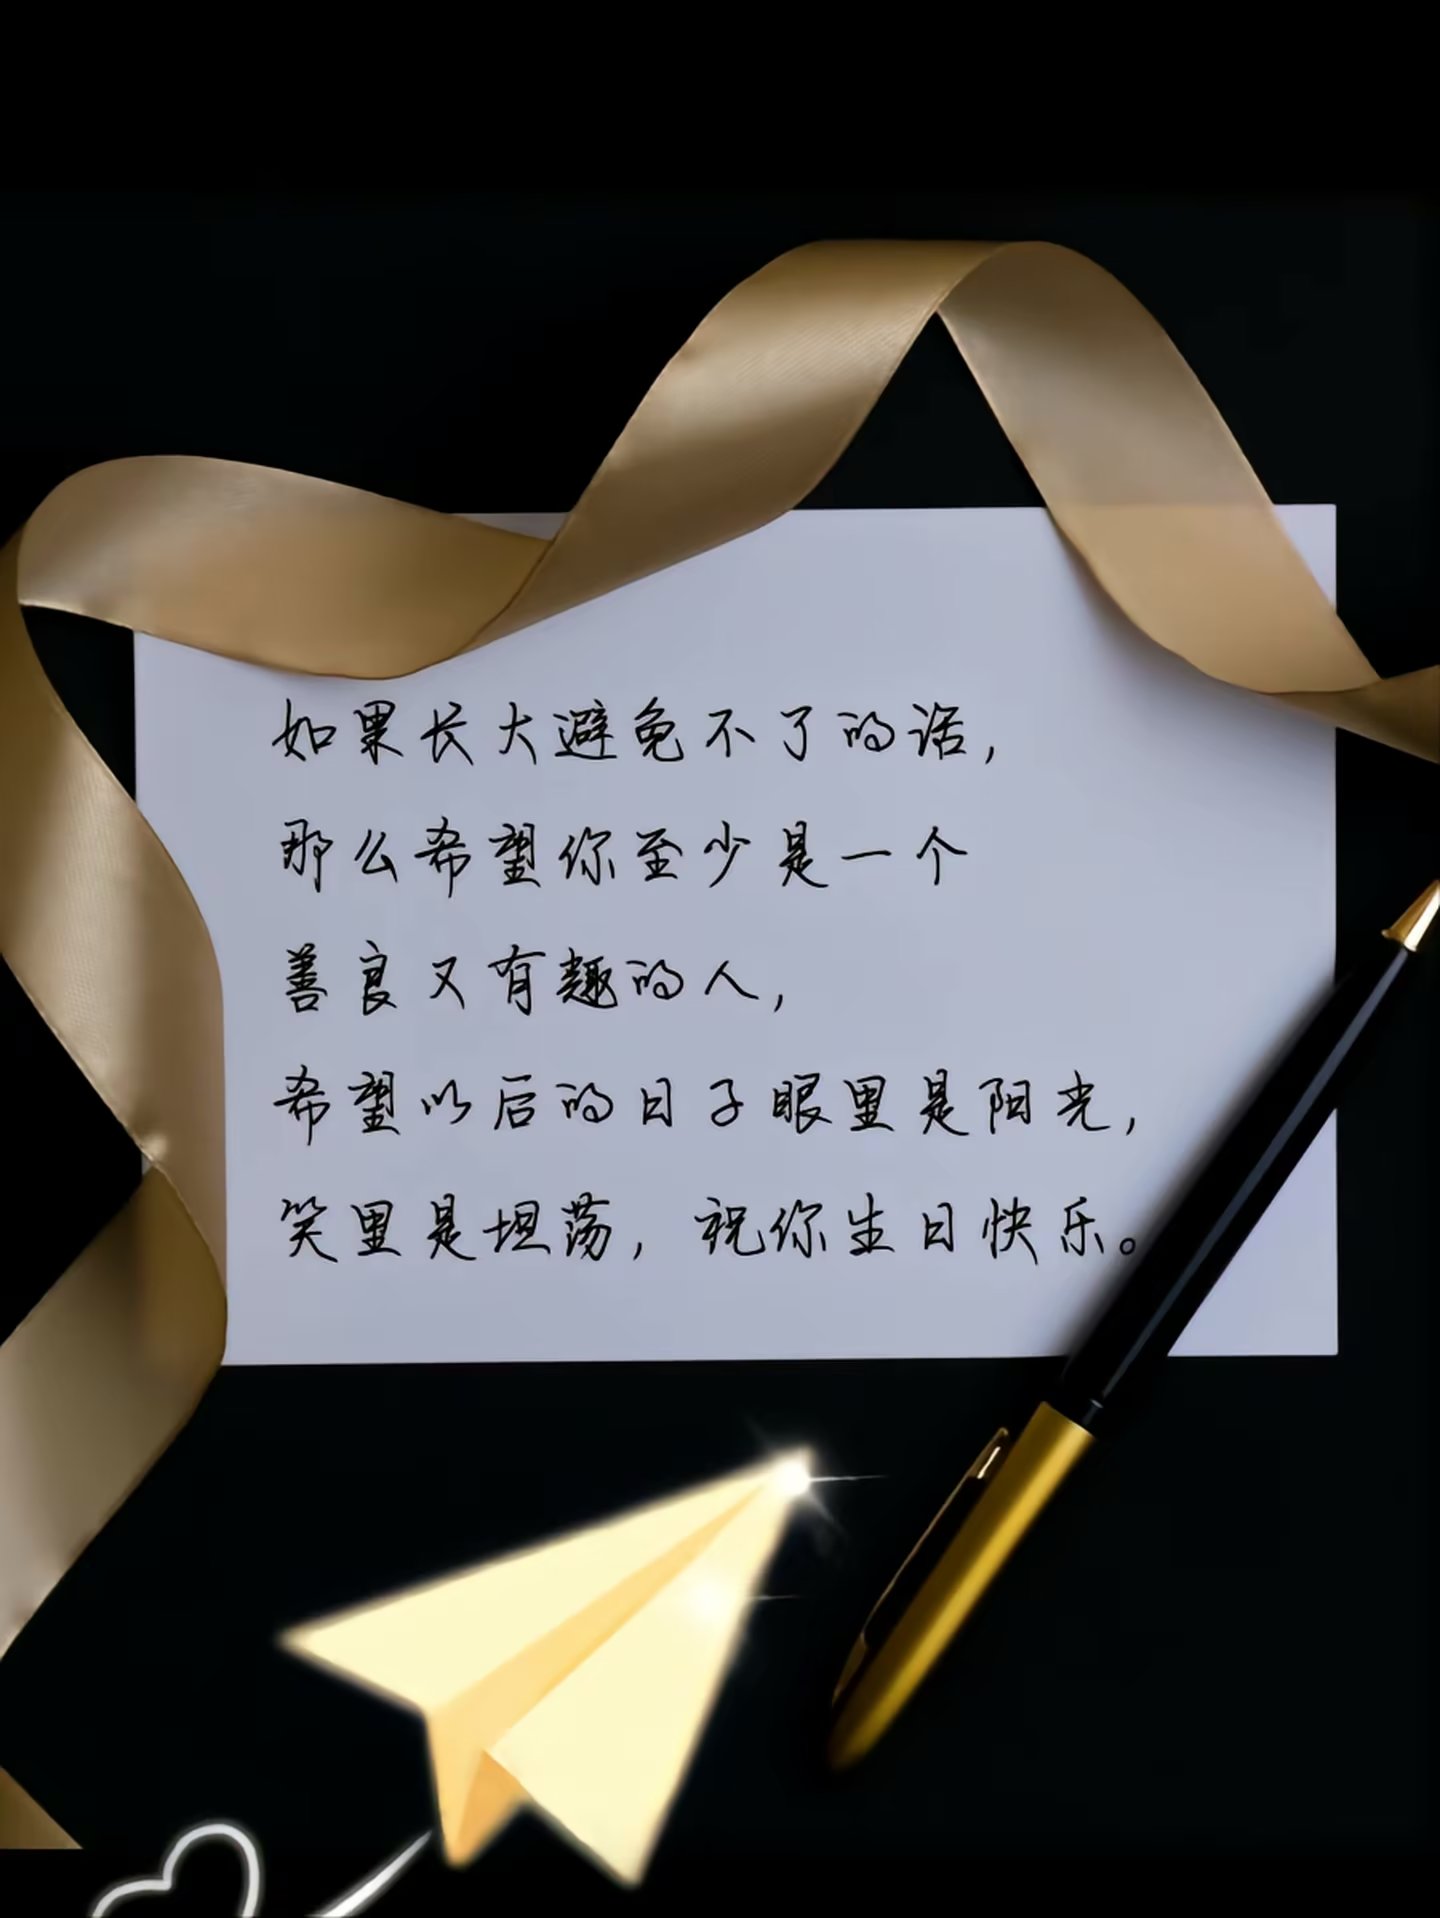 如果长大避免不了的话,
那么希望你至少是一个
善良又有趣的人,
希望以后的日子眼里是阳光,
笑里是坦荡,祝你生日快乐。